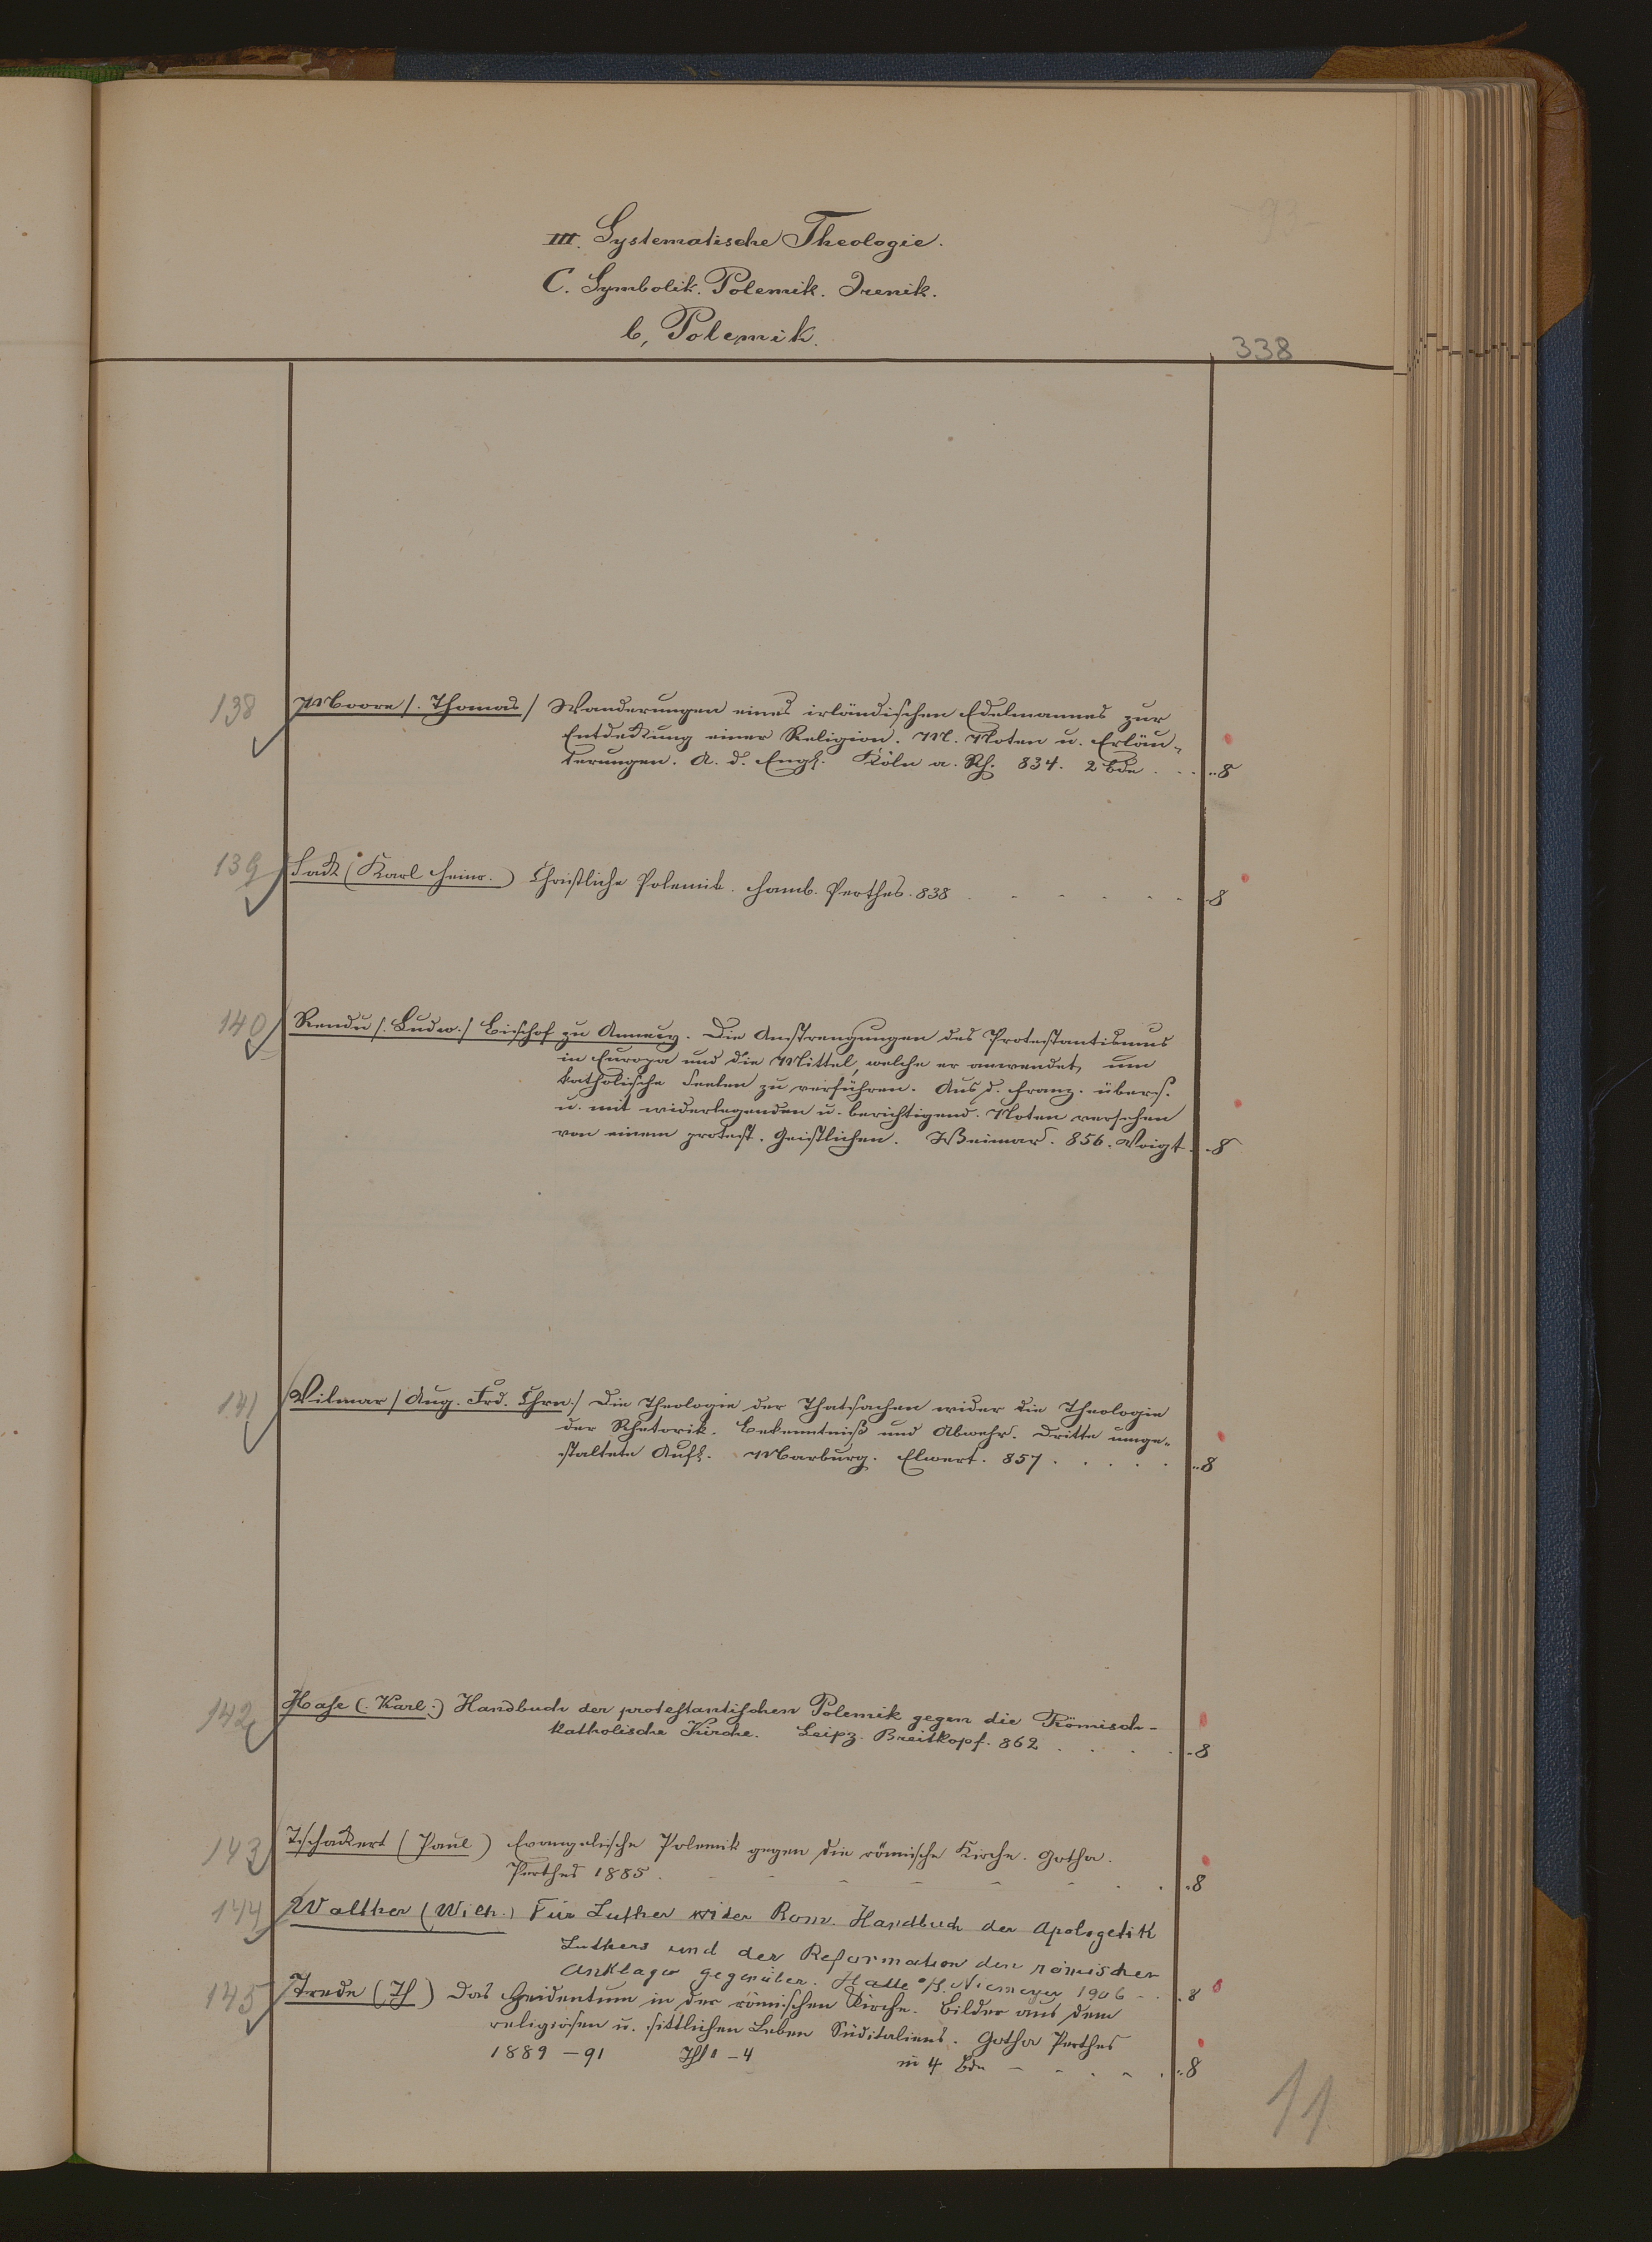 -93-
III. Systematische Theologie.
C. Symbolik. Polemik. Irenik.
b, Polemik.
338
138 Moore /. Thomas / Wanderungen eines irländischen Edelmannes zur
Entdeckung einer Religion. M. Noten u. Erläu-
terungen. A. d. Engl. Köln a. Rh. 834. 2 Bde . . . 8
139 Sack (Karl Heinr.) Christliche Polemik. Hamb. Perthes. 838 . . . . . . 8
140 Rendu /. Ludw./ Bischof zu Annecy. Die Anstrengungen des Protestantismus
in Europa und die Mittel, welche er anwendet, um
katholische Seelen zu verführen. Aus d. Franz. übers.
u. mit widerlegenden u. berichtigend. Noten versehen
von einem protest. Geistlichen. Weimar. 856. Voigt . 8
141 Vilmar / Aug. Frd. Chrn./ Die Theologie der Thatsachen wider die Theologie
der Rhetorik. Bekenntniß und Abwehr. Dritte umge-
staltete Aufl. Marburg. Elwert. 857 . . . . . 8
142 Hase (. Karl.) Handbuch der protestantischen Polemik gegen die Römisch-
katholische Kirche. Leipz. Breitkopf. 862 . . . . 8
143 Tschackert (Paul) Evangelische Polemik gegen die römische Kirche. Gotha.
Perthes 1885 . - - - - - - . . 8
144 Walther (Wilh.) Für Luther wider Rom. Handbuch der Apologetik
Luthers und der Reformation den römischen
Anklagen gegenüber. Halle a/S. Niemeyer 1906 - . . 8
145 Trede (Th) Das Heidentum in der römischen Kirche. Bilder aus dem
religiösen u. sittlichen Leben Süditaliens. Gotha Perthes
1889 - 91 Thl 1 - 4 in 4 Bdn - - . - . 8
11